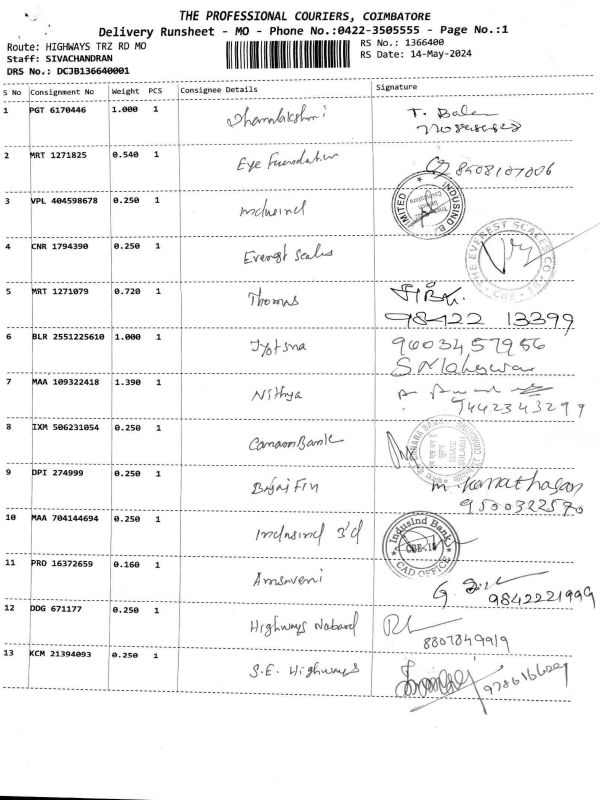 THE PROFESSIONAL COURIERS, COIMBATORE
Delivery Runsheet - MO - Phone No.:0422-3505555 - Page No.:1
Route: HIGHWAYS TRZ RD MO
RS No.: 1366400
Staff: SIVACHANDRAN
RS Date: 14-May-2024
DRS No.: DCJB136640001
S No Consignment No Weight PCS Consignee Details Signature
1 PGT 6170446 1.000 1 Dhanalakshmi T. Bala
2 MRT 1271825 0.540 1 Eye Foundation 8508107006
3 VPL 404598678 0.250 1 Indusind
INDUSIND B
LIMITED
4 CNR 1794390 0.250 1 Everest Scales
THE EVEREST SCALES CO.
CBE
5 MRT 1271079 0.720 1 Thomas
98422 13399
6 BLR 2551225610 1.000 1 Jyotsna 9003457956
S Maheswar
7 MAA 109322418 1.390 1 Nithya
9442343299
8 IXM 506231054 0.250 1 Canara Bank
CANARA BANK
9 DPI 274999 0.250 1 Bajaj Fin
9500322570
10 MAA 704144694 0.250 1 Indusind
Indusind Bank
CBE-18
CAD OFFICE
11 PRO 16372659 0.160 1 Amsaveni
9842221999
12 DDG 671177 0.250 1 Highways Nabard
8807849919
13 KCM 21394093 0.250 1 S.E. Highways